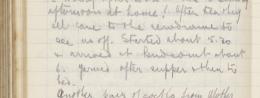 afternoon at home! After tea they
all came to the aerodrome to
see us off. Started about 5.30
& arrived at about
6. after supper & then to
bed.
Another pair of socks from Mother